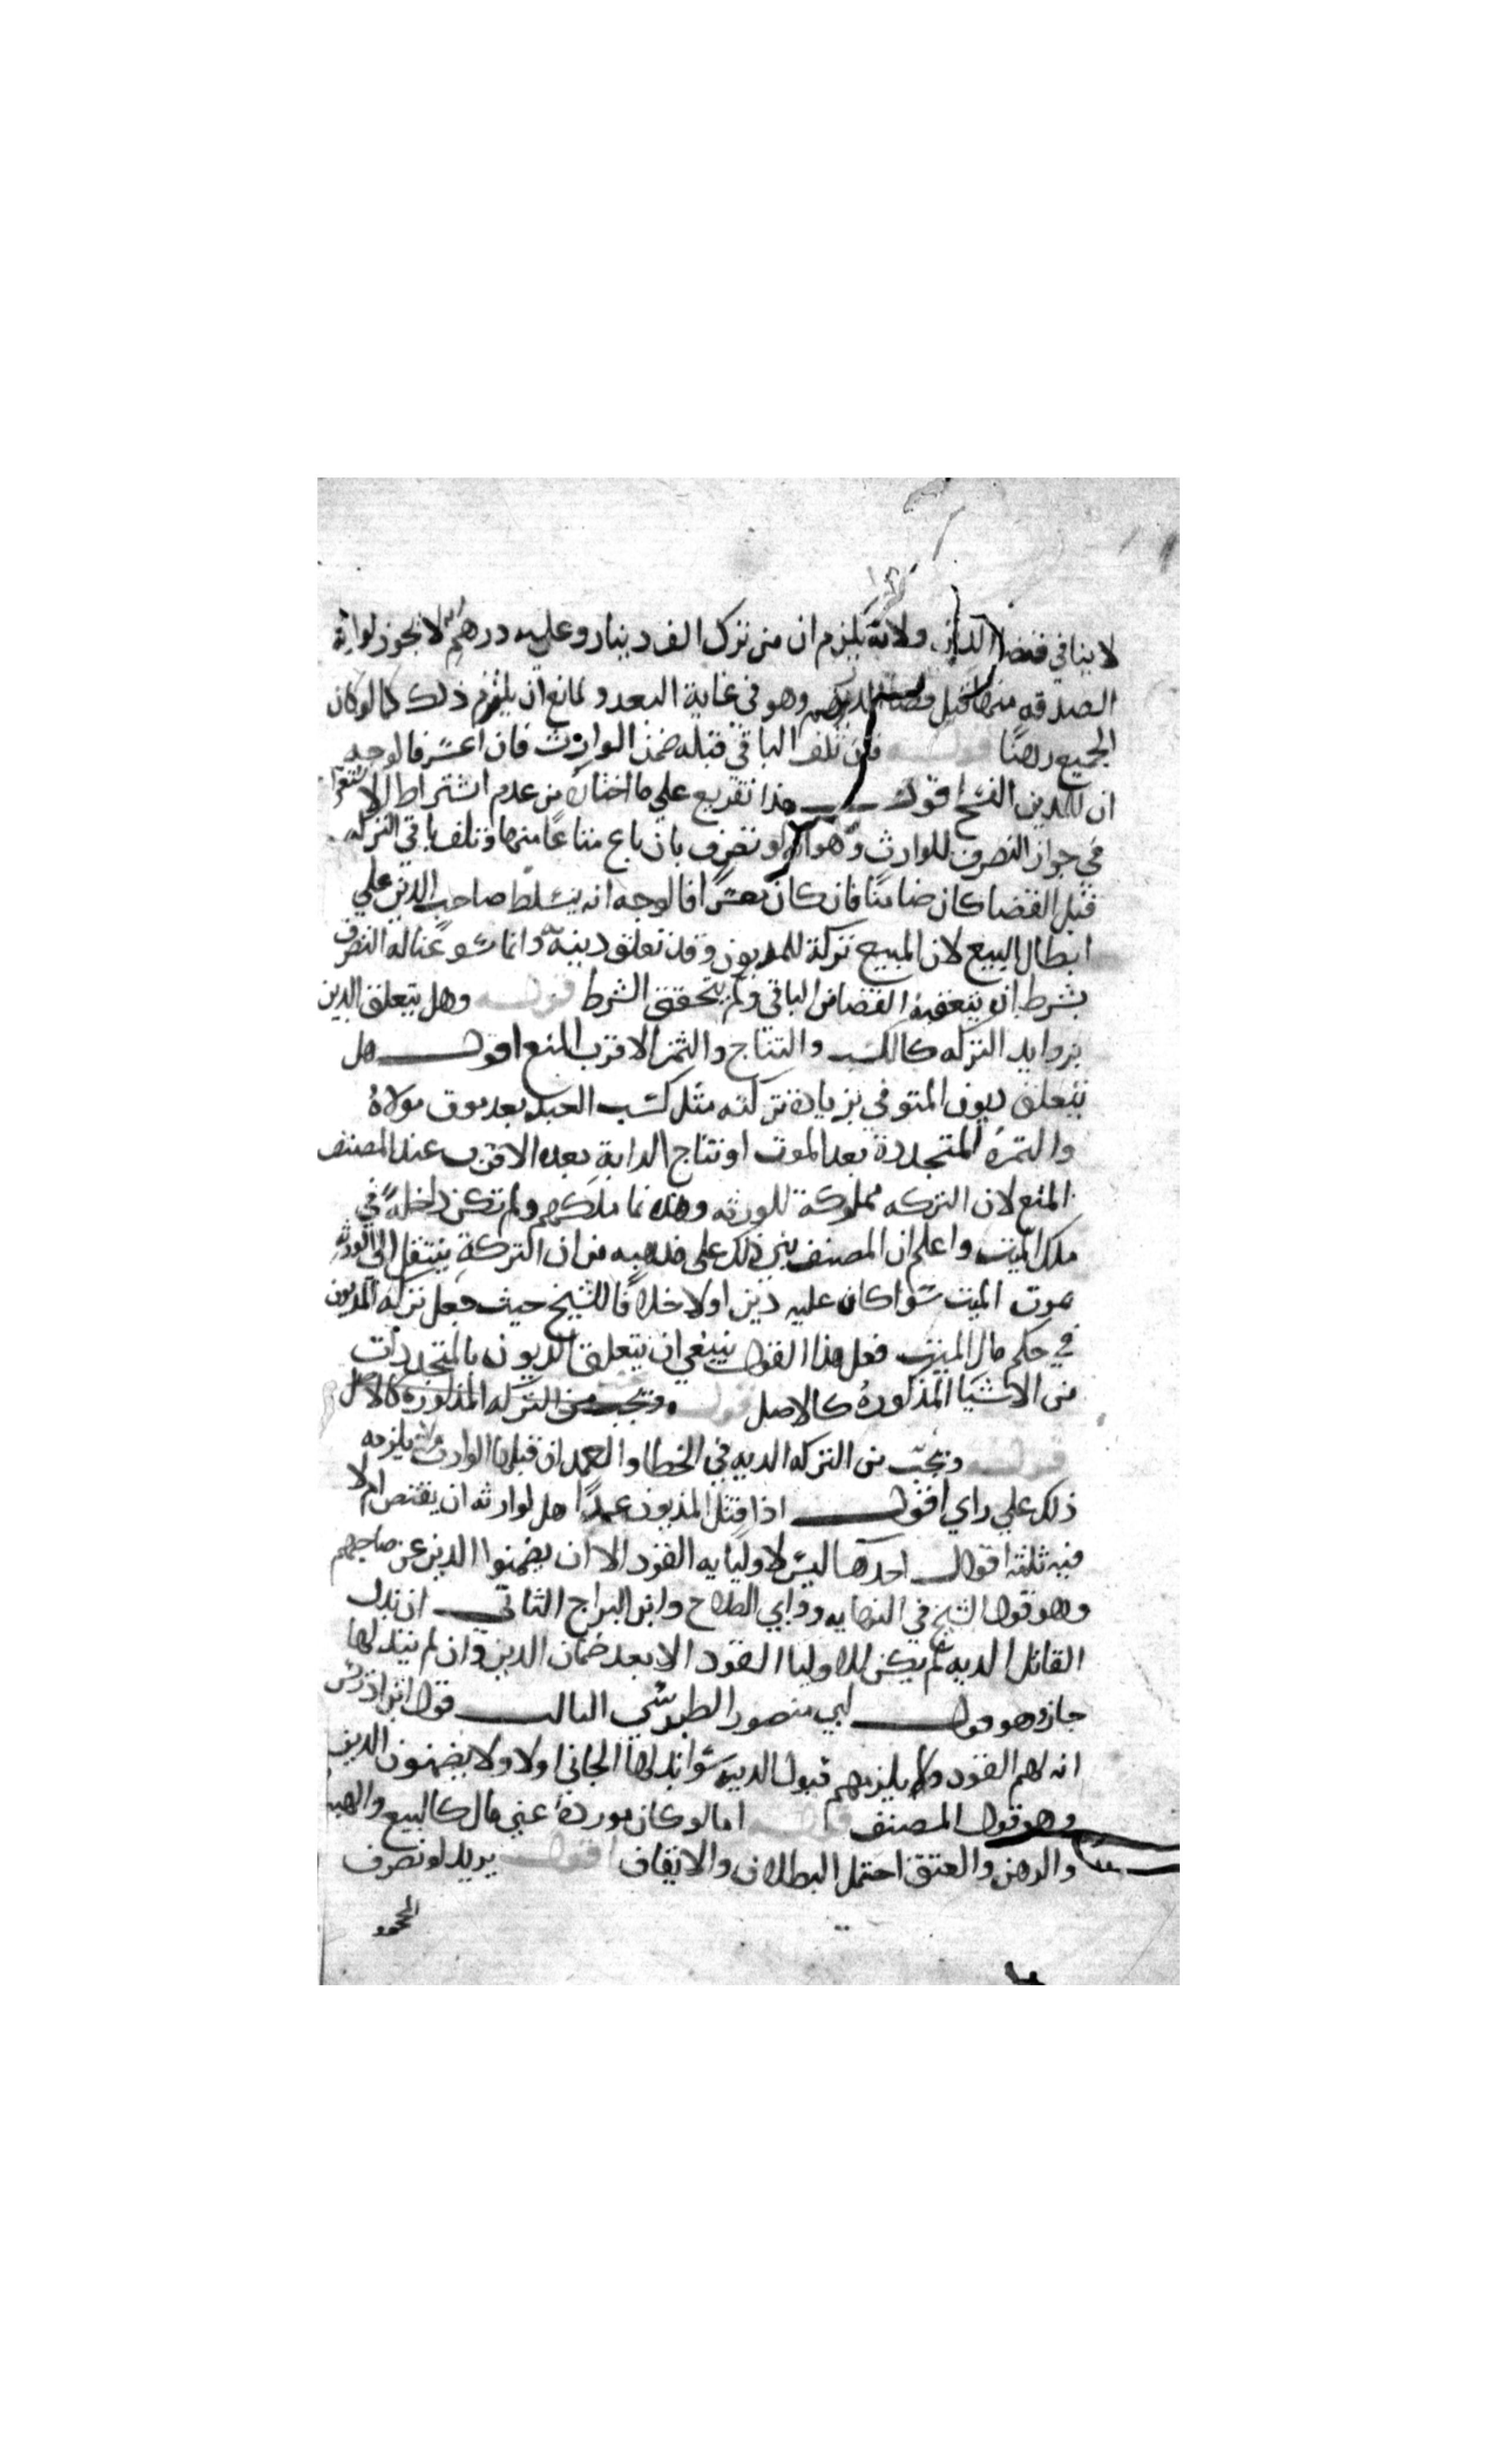 لا ينافي قضا الدين ولانه يلزم ان من ترك الف دينار وعليه درهم لا يجوز لوارثه
الصدقه منها قبل قضا الدرهم وهو في غاية البعد ولمانع ان يلتزم ذلك كما لو كان
الجميع رهنا قوله فان تلف الباقي قبله ضمن الوارث فان اعسر فالوجه
ان للمدين الفسخ اقول هذا تفريع على ما اختاره من عدم اشتراط الاستغراق
في جواز التصرف للوارث وهو انه لو تصرف بان باع متاعا منها وتلف باقي التركه
قبل القضا كان ضامنا فان كان معسرا فالوجه انه يتسلط صاحب الدين علي
ابطال البيع لان المبيع تركة للمديون وقد تعلق دينه به وانما سوغنا له التصرف
بشرط ان يتعقبه القضا من الباقي ولم يتحقق الشرط قوله وهل يتعلق الدين
بزوايد التركه كالكسب والنتاج والثمره الاقرب المنع اقول هل
يتعلق ديون المتوفي بزيادة تركته مثل كسب العبد بعد موت مولاه
والثمره المتجددة بعد الموت او نتاج الدابة بعده الاقرب عند المصنف
المنع لان التركه مملوكة للورثه وهذه نما ملكهم ولم تكن داخلة في
ملك الميت واعلم ان المصنف بني ذلك على مذهبه من ان التركة ينتقل الى الورثه
بموت الميت سوا كان عليه دين اولا خلافا للشيخ حيث جعل تركه المديون
في حكم مال الميت فعلى هذا القول ينبغي ان يتعلق الديون بالمتجددات
من الاشيا المذكوره كالاصل قوله وتجب من التركه المذكوره كالاصل
قوله وتجب من التركه الديه في الخطا والعمد ان قبلها الوارث ولا يلزمه
ذلك علي راي اقول اذا قتل المديون عمدا هل لوارثه ان يقتص ام لا
فيه ثلثه اقوال احدها ليس لاوليايه القود الا ان يضمنوا الدين عن صاحبهم
وهو قول الشيخ في النهايه وابي الصلاح وابن البراج الثاني ان بذل
القاتل الديه لم يكن للاوليا القود الا بعد ضمان الدين وان لم يبذلها
جاز وهو قول ابي منصور الطبرسي الثالث قول ابن ادريس
انه لهم القود ولا يلزمهم قبول الدية سوا بذلها الجاني اولا ولا يضمنون الدين
وهو قول المصنف قوله اما لو كان مورده عين مال كالبيع والهبه
والرهن والعتق احتمل البطلان والايقاف اقول يريد لو تصرف
المحجور